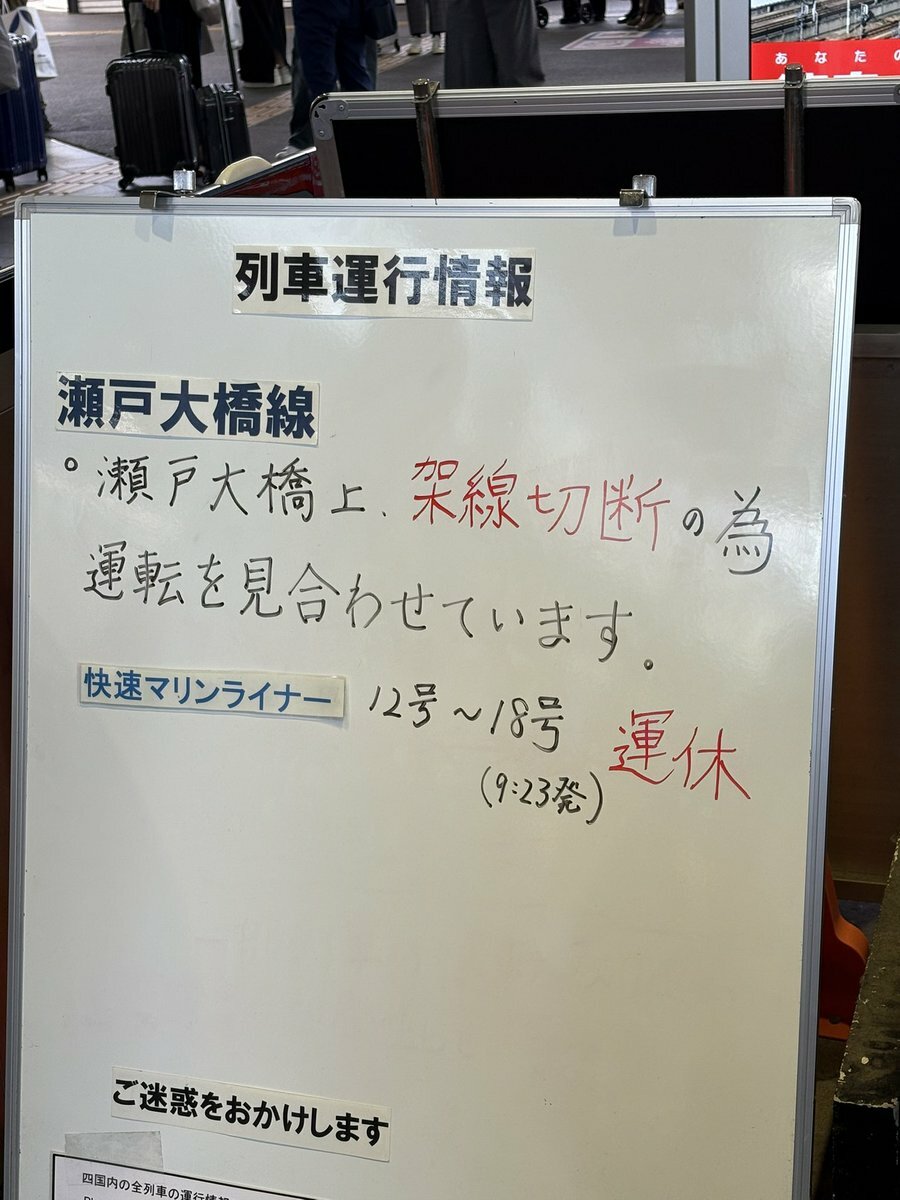 あなたの
列車運行情報
瀬戸大橋線
。瀬戸大橋上、架線切断の為
運転を見合わせています。
快速マリンライナー 12号~18号 運休
(9:23発)
ご迷惑をおかけします
四国内の全列車の運行情報